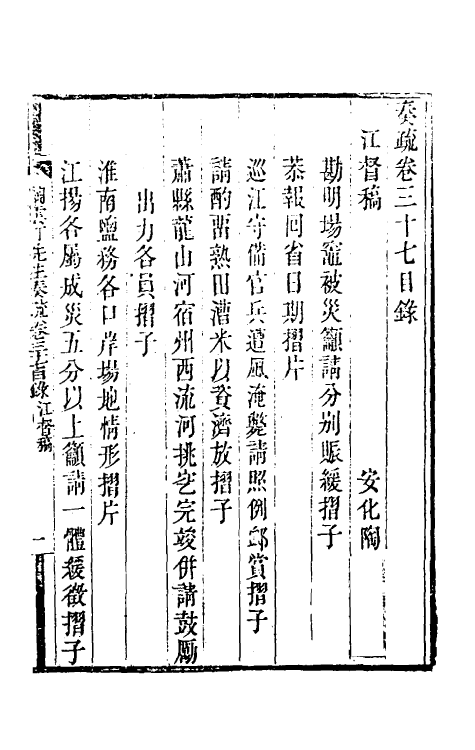 奏疏卷三十七目錄
江督稿　安化陶
勘明場竈被災籲請分別賑緩摺子
恭報回省日期摺片
巡江守備官兵遭風淹斃請照例卹賞摺子
請酌留熟田漕米以資濟放摺子
蕭縣龍山河宿州西流河挑窆完竣併請鼓勵
出力各員摺子
淮南鹽務各口岸場地情形摺片
江揚各屬成災五分以上籲請一體緩徵摺子
先生奏疏卷三十七目錄　江督稿　一